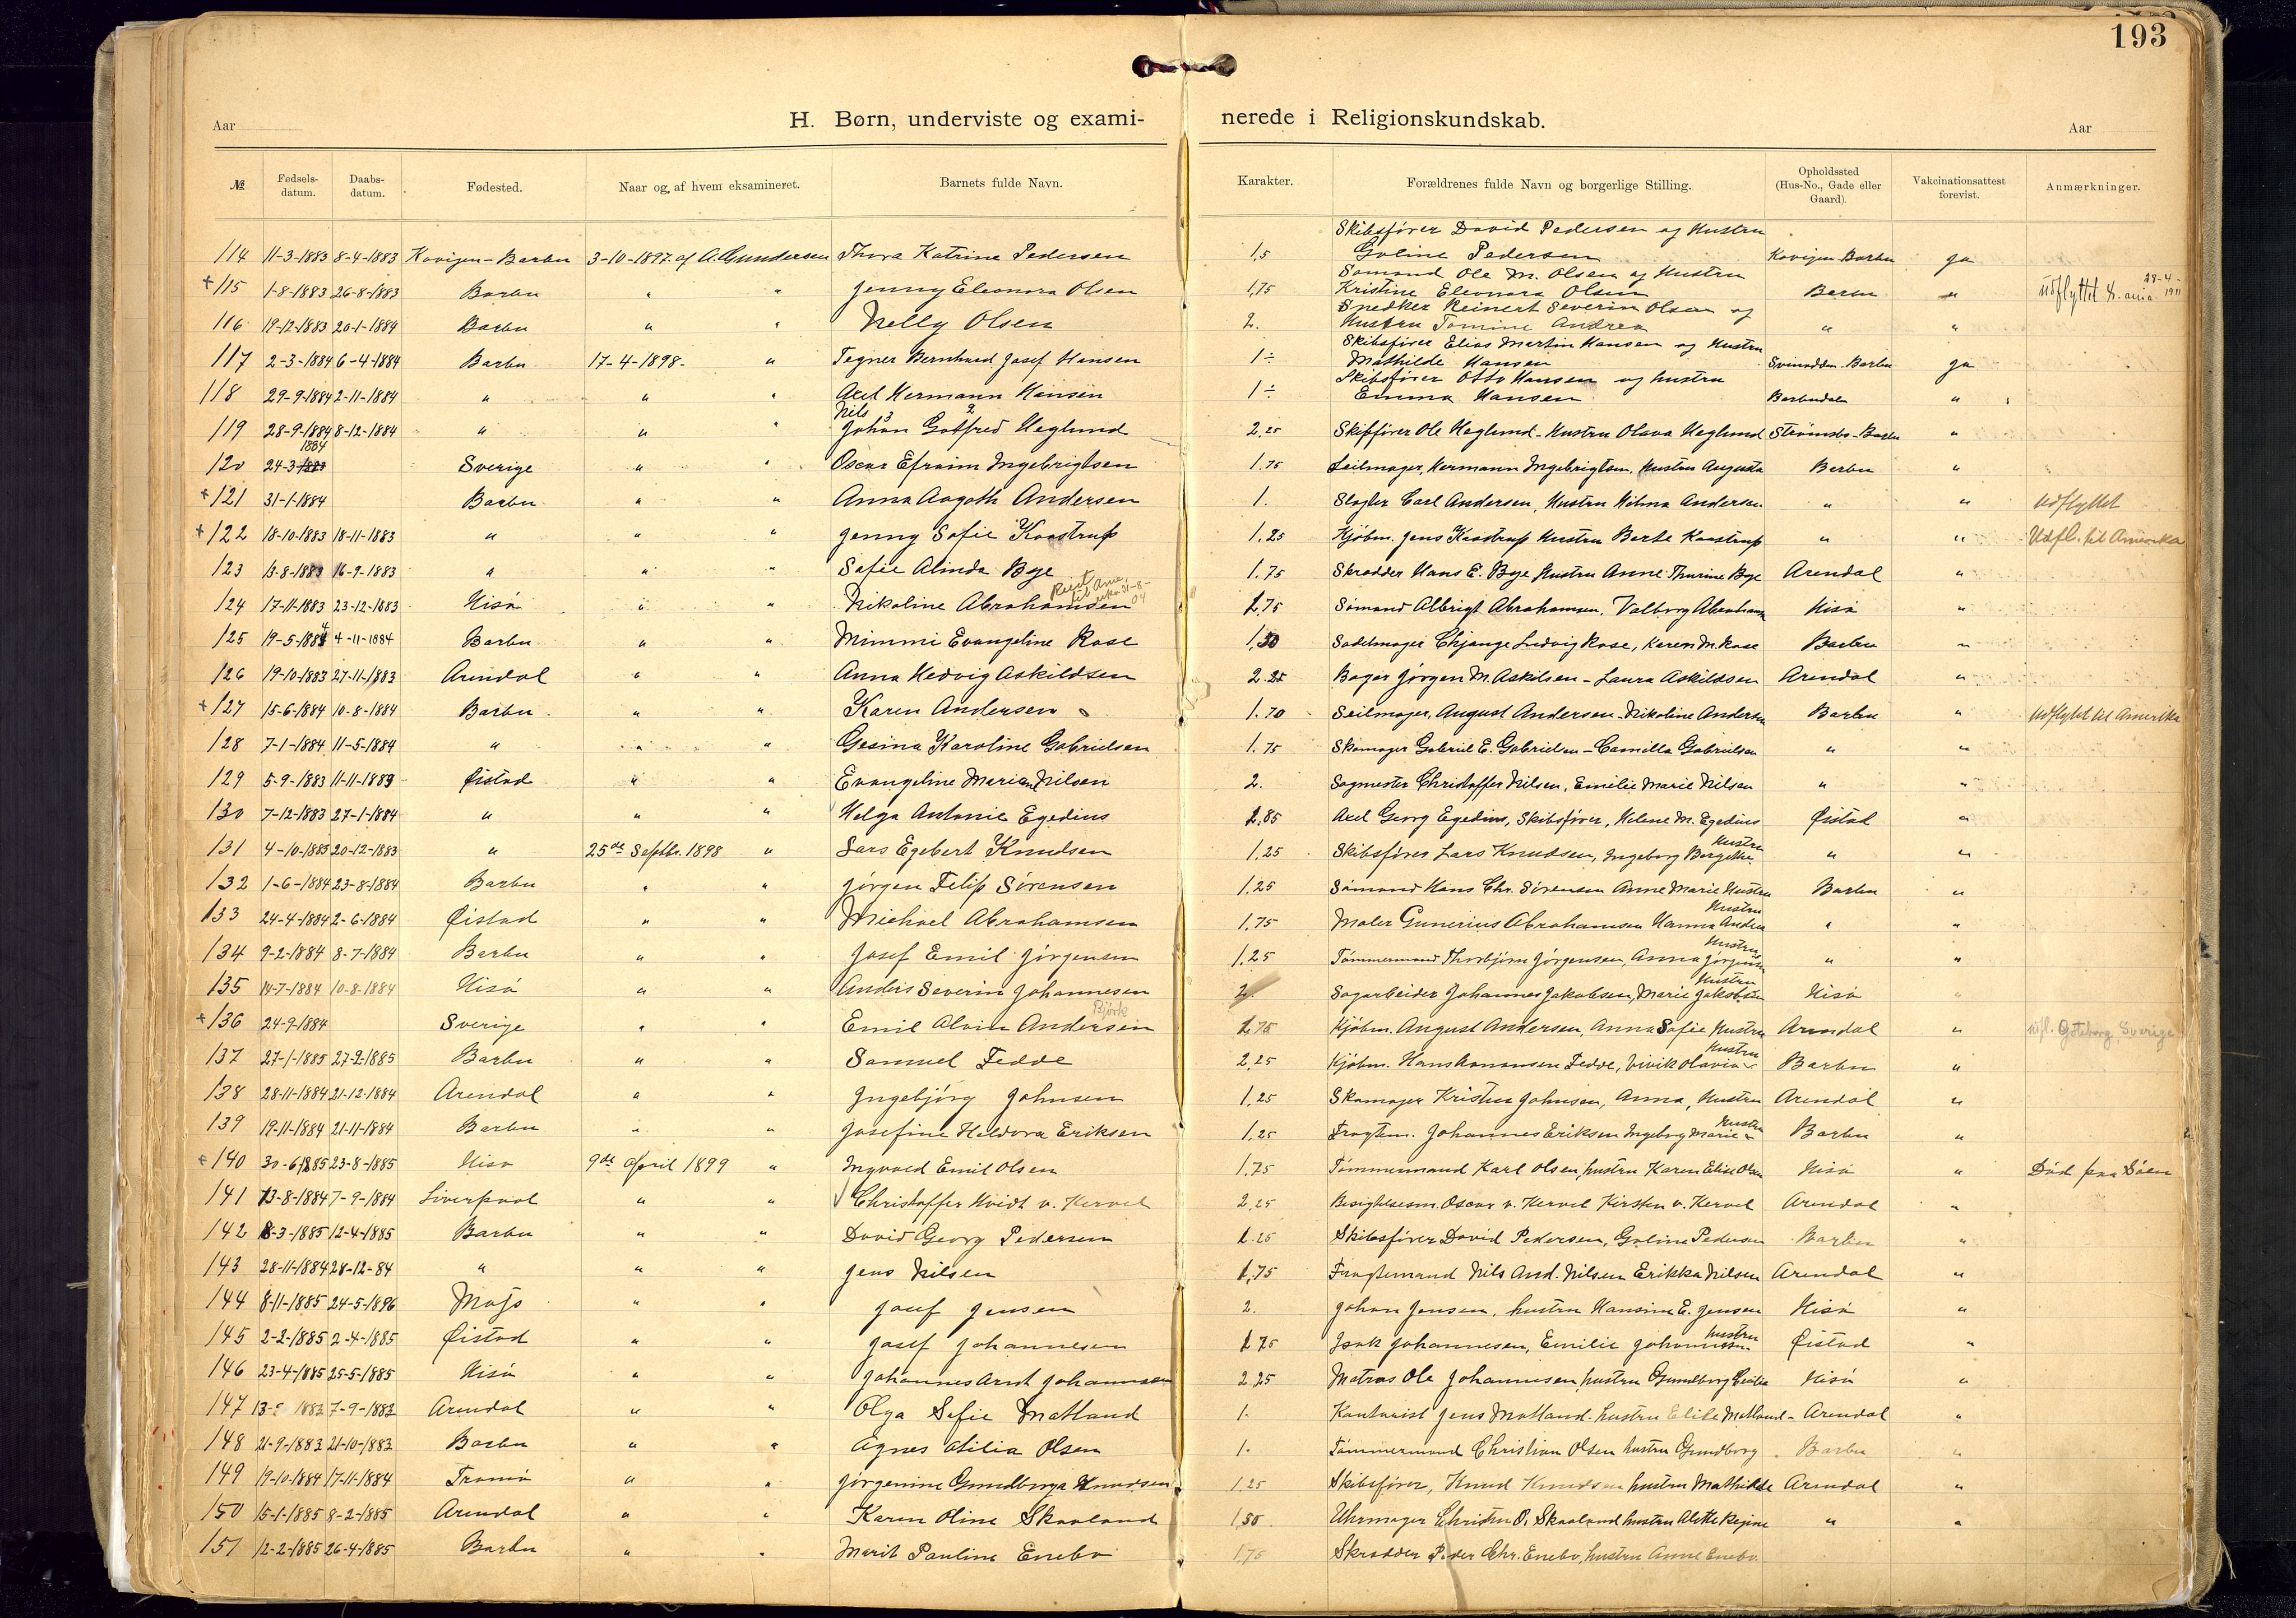 193
Aar
H. Børn, underviste og exami-
nerede i Religionskundskab.
Aar
№ Fødsels-datum. Daabs-datum. Fødested. Naar og af hvem eksamineret. Barnets fulde Navn. Karakter. Forældrenes fulde Navn og borgerlige Stilling. Opholdssted (Hus-No., Gade eller Gaard). Vakcinationsattest forevist. Anmærkninger.
Skibsfører David Pedersen og Hustru
114 11-3-1883 8-4-1883 Kovigen-Barbu 3-10-1897 af A. Gundersen Thora Katrine Pedersen 1,5 Goline Pedersen Kovigen Barbu ja
Sømand Ole M. Olsen og Hustru
+115 1-8-1883 26-8-1883 Barbu " " Jenny Eleonora Olsen 1,75 Kristine Eleonora Olsen Barbu " udflyttet Kr.ania 28-4-1911
Snedker Reinert Severin Olsen og
116 19-12-1883 20-1-1884 Barbu " " Nelly Olsen 2. Hustru Tomine Andrea " "
Skibsfører Elias Martin Hansen og Hustru
117 2-3-1884 6-4-1884 Barbu 17-4-1898- " Tegner Bernhard Josef Hansen 1÷ Mathilde Hansen Barbu ja
Skibsfører Otto Hansen og hustru
118 29-9-1884 2-11-1884 " " " Axel Hermann Hansen 1÷ Emma Hansen Barbudalen "
Nils 3 2
119 28-9-1884 8-12-1884 " " " Johan Gotfred Heglund 2,25 Skibfører Ole Heglund - Hustru Olava Heglund Strømsbo-Barbu "
1884
120 24-3-1883 Sverige " " Oscar Efraim Ingebrigtsen 1.75 Seilmager, Hermann Ingebrigtsen, Hustru Augusta Barbu "
+121 31-1-1884 Barbu " " Anna Aagoth Andersen 1. Slagter Carl Andersen, Hustru Hilma Andersen " " Udflyttet
+122 18-10-1883 18-11-1883 " " " Jenny Sofie Kaastrup 1.25 Kjøbm. Jens Kaastrup Hustru Berte Kaastrup " " Udfl. til Amerika
123 13-8-1883 16-9-1883 " " " Sofie Alinda Bye 1.75 Skrædder Hans E. Bye Hustru Anne Thurine Bye Arendal "
Reist til Amerika 31-8-04
124 17-11-1883 23-12-1883 Hisø " " Nikoline Abrahamsen 1,75 Sømand Albrigt Abrahamsen, Valborg Abrahamsen Hisø "
125 19-5-1884 4-11-1884 Barbu " " Mimmi Evangeline Rose 1,50 Sadelmager Ludvig Rose, Karen M. Rose Barbu "
126 19-10-1883 27-11-1883 Arendal " " Anna Hedvig Askildsen 2.25 Bager Jørgen M. Askilsen - Laura Askildsen Arendal "
+127 15-6-1884 10-8-1884 Barbu " " Karen Andersen 1.70 Seilmager, August Andersen - Nikoline Andersen Barbu " Udflyttet til Amerika
128 7-1-1884 11-5-1884 " " " Gesina Karoline Gabrielsen 1.75 Skomager Gabriel E. Gabrielsen - Camilla Gabrielsen " "
129 5-9-1883 11-11-1883 Øistad " " Evangeline Marian Nilsen 2. Sagmester Christoffer Nilsen, Emilie Marie Nilsen " "
130 7-12-1883 27-1-1884 " " " Helga Antonie Egedius 1,85 Axel Georg Egedius, Skibsfører, Helene M. Egedius Øistad "
131 4-10-1883 20-12-1883 " 25de Septbr. 1898 " Lars Egebert Knudsen 1,25 Skibsfører Lars Knudsen, Ingeborg Hustru " "
132 1-6-1884 23-8-1884 Barbu " " Jørgen Filip Sørensen 1,25 Sømand Hans Chr. Sørensen Anne Marie Hustru Barbu "
133 24-4-1884 2-6-1884 Øistad " " Michael Abrahamsen 1,75 Maler Gunerius Abrahamsen Hanna Andrea Hustru " "
134 9-2-1884 8-7-1884 Barbu " " Josef Emil Jørgensen 1,25 Tømmermand Thorbjørn Jørgensen, Anna Jørgensen Hustru " "
135 14-7-1884 10-8-1884 Hisø " " Anders Severin Johannesen 2. Sagarbeider Johannes Jakobsen, Marie Jakobsen Hustru Hisø "
Björk
+136 24-9-1884 Sverige " " Emil Alvin Andersen 1,75 Kjøbm. August Andersen, Anna Sofie Hustru Arendal " udfl. Gøteborg Sverige
137 27-1-1885 27-2-1885 Barbu " " Samuel Fedde 2,25 Kjøbm. Hans Fedde, Olavia Hustru Barbu "
138 28-11-1884 21-12-1884 Arendal " " Ingebjørg Johnsen 1,25 Skomager Kristen Johnsen, Anna, Hustru Arendal "
139 19-11-1884 21-11-1884 Barbu " " Josefine Haldora Eriksen 1,25 Fragtem. Johannes Eriksen Ingeborg Marie Hustru Barbu "
+140 30-6-1885 23-8-1885 Hisø 9de April 1899 " Ingvald Emil Olsen 1,75 Tømmermand Karl Olsen, hustru Karen Elise Olsen Hisø " Død paa Søen
141 13-8-1884 7-9-1884 Liverpool " " Christoffer Hvidt v. Kervel 2,25 Besigtelsesm. Oscar v. Kervel Kirsten v. Kervel Arendal "
142 8-3-1885 12-4-1885 Barbu " " David Georg Pedersen 1.25 Skibsfører David Pedersen, Goline Pedersen Barbu "
143 28-11-1884 28-12-84 " " " Jens Nilsen 1,75 Fragtemand Nils And. Nilsen Erikka Nilsen Arendal "
144 8-11-1885 24-5-1896 " " Josef Jensen 2. Johan Jensen, hustru Hansine E. Jensen Hisø "
145 2-2-1885 2-4-1885 Øistad " " Josef Johannesen 1,75 Isak Johannesen, Emilie Johannesen hustru Øistad "
146 23-4-1885 25-5-1885 Hisø " " Johannes Arnt Johannesen 2,25 Matros Ole Johannesen hustru Gundborg Hisø "
147 1883 7-9-1883 Arendal " " Olga Sofie Matland 1. Kontorist Jens Matland. hustru Elise Matland - Arendal "
148 21-9-1883 21-10-1883 Barbu " " Agnes Otilia Olsen 1. Tømmermand Christian Olsen hustru Gundborg Barbu "
149 19-10-1884 17-11-1884 Tromø " " Jørgenine Gundborga Knudsen 1,25 Skibsfører, Knud Knudsen hustru Mathilde Arendal "
150 15-1-1885 8-2-1885 Arendal " " Karen Oline Skaaland 1,50 Uhrmager Christen O. Skaaland hustru Alette Regine " "
151 12-2-1885 26-4-1885 Barbu " " Marit Pauline Enebo 1,75 Skrædder Peder Chr. Enebo, hustru Anne Enebo.